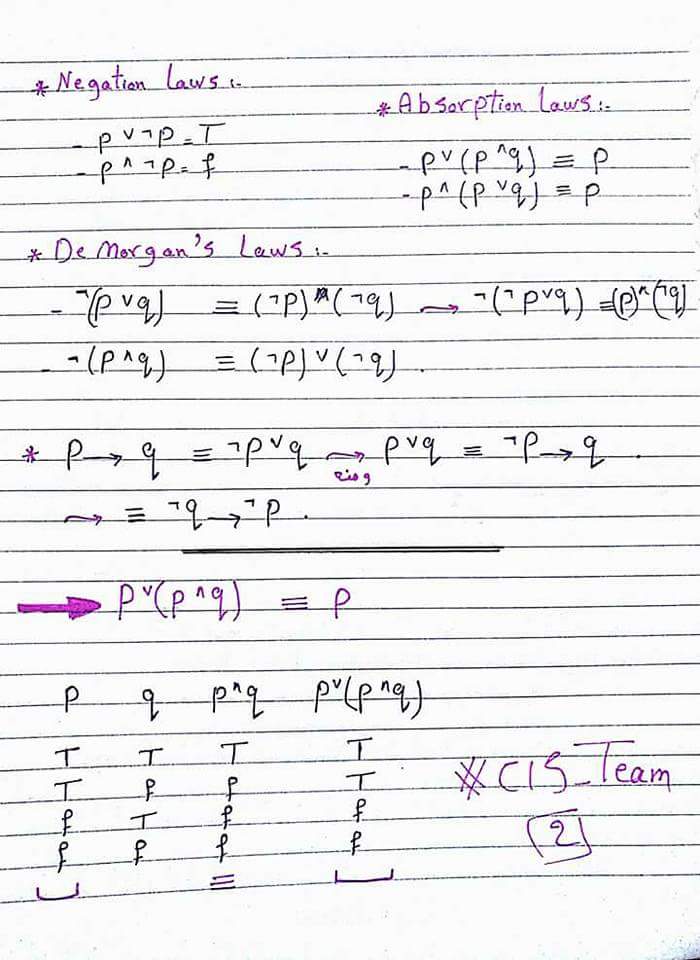 * Negation Laws:-
- p ∨ ¬p = T
- p ∧ ¬p = f
* Absorption Laws:-
- p ∨ (p ∧ q) ≡ p
- p ∧ (p ∨ q) ≡ p
* De Morgan's Laws:-
- ¬(p ∨ q) ≡ (¬p) ∧ (¬q) ⇝ ¬(¬p ∨ q) ≡ (p) ∧ (¬q)
- ¬(p ∧ q) ≡ (¬p) ∨ (¬q) .
* p → q ≡ ¬p ∨ q ⇝ p ∨ q ≡ ¬p → q .
ومنه
⇝ ≡ ¬q → ¬p .
➡ p ∨ (p ∧ q) ≡ p
p q p ∧ q p ∨ (p ∧ q)
T T T T
T f f T
f T f f
f f f f
≡
# CIS_Team
2